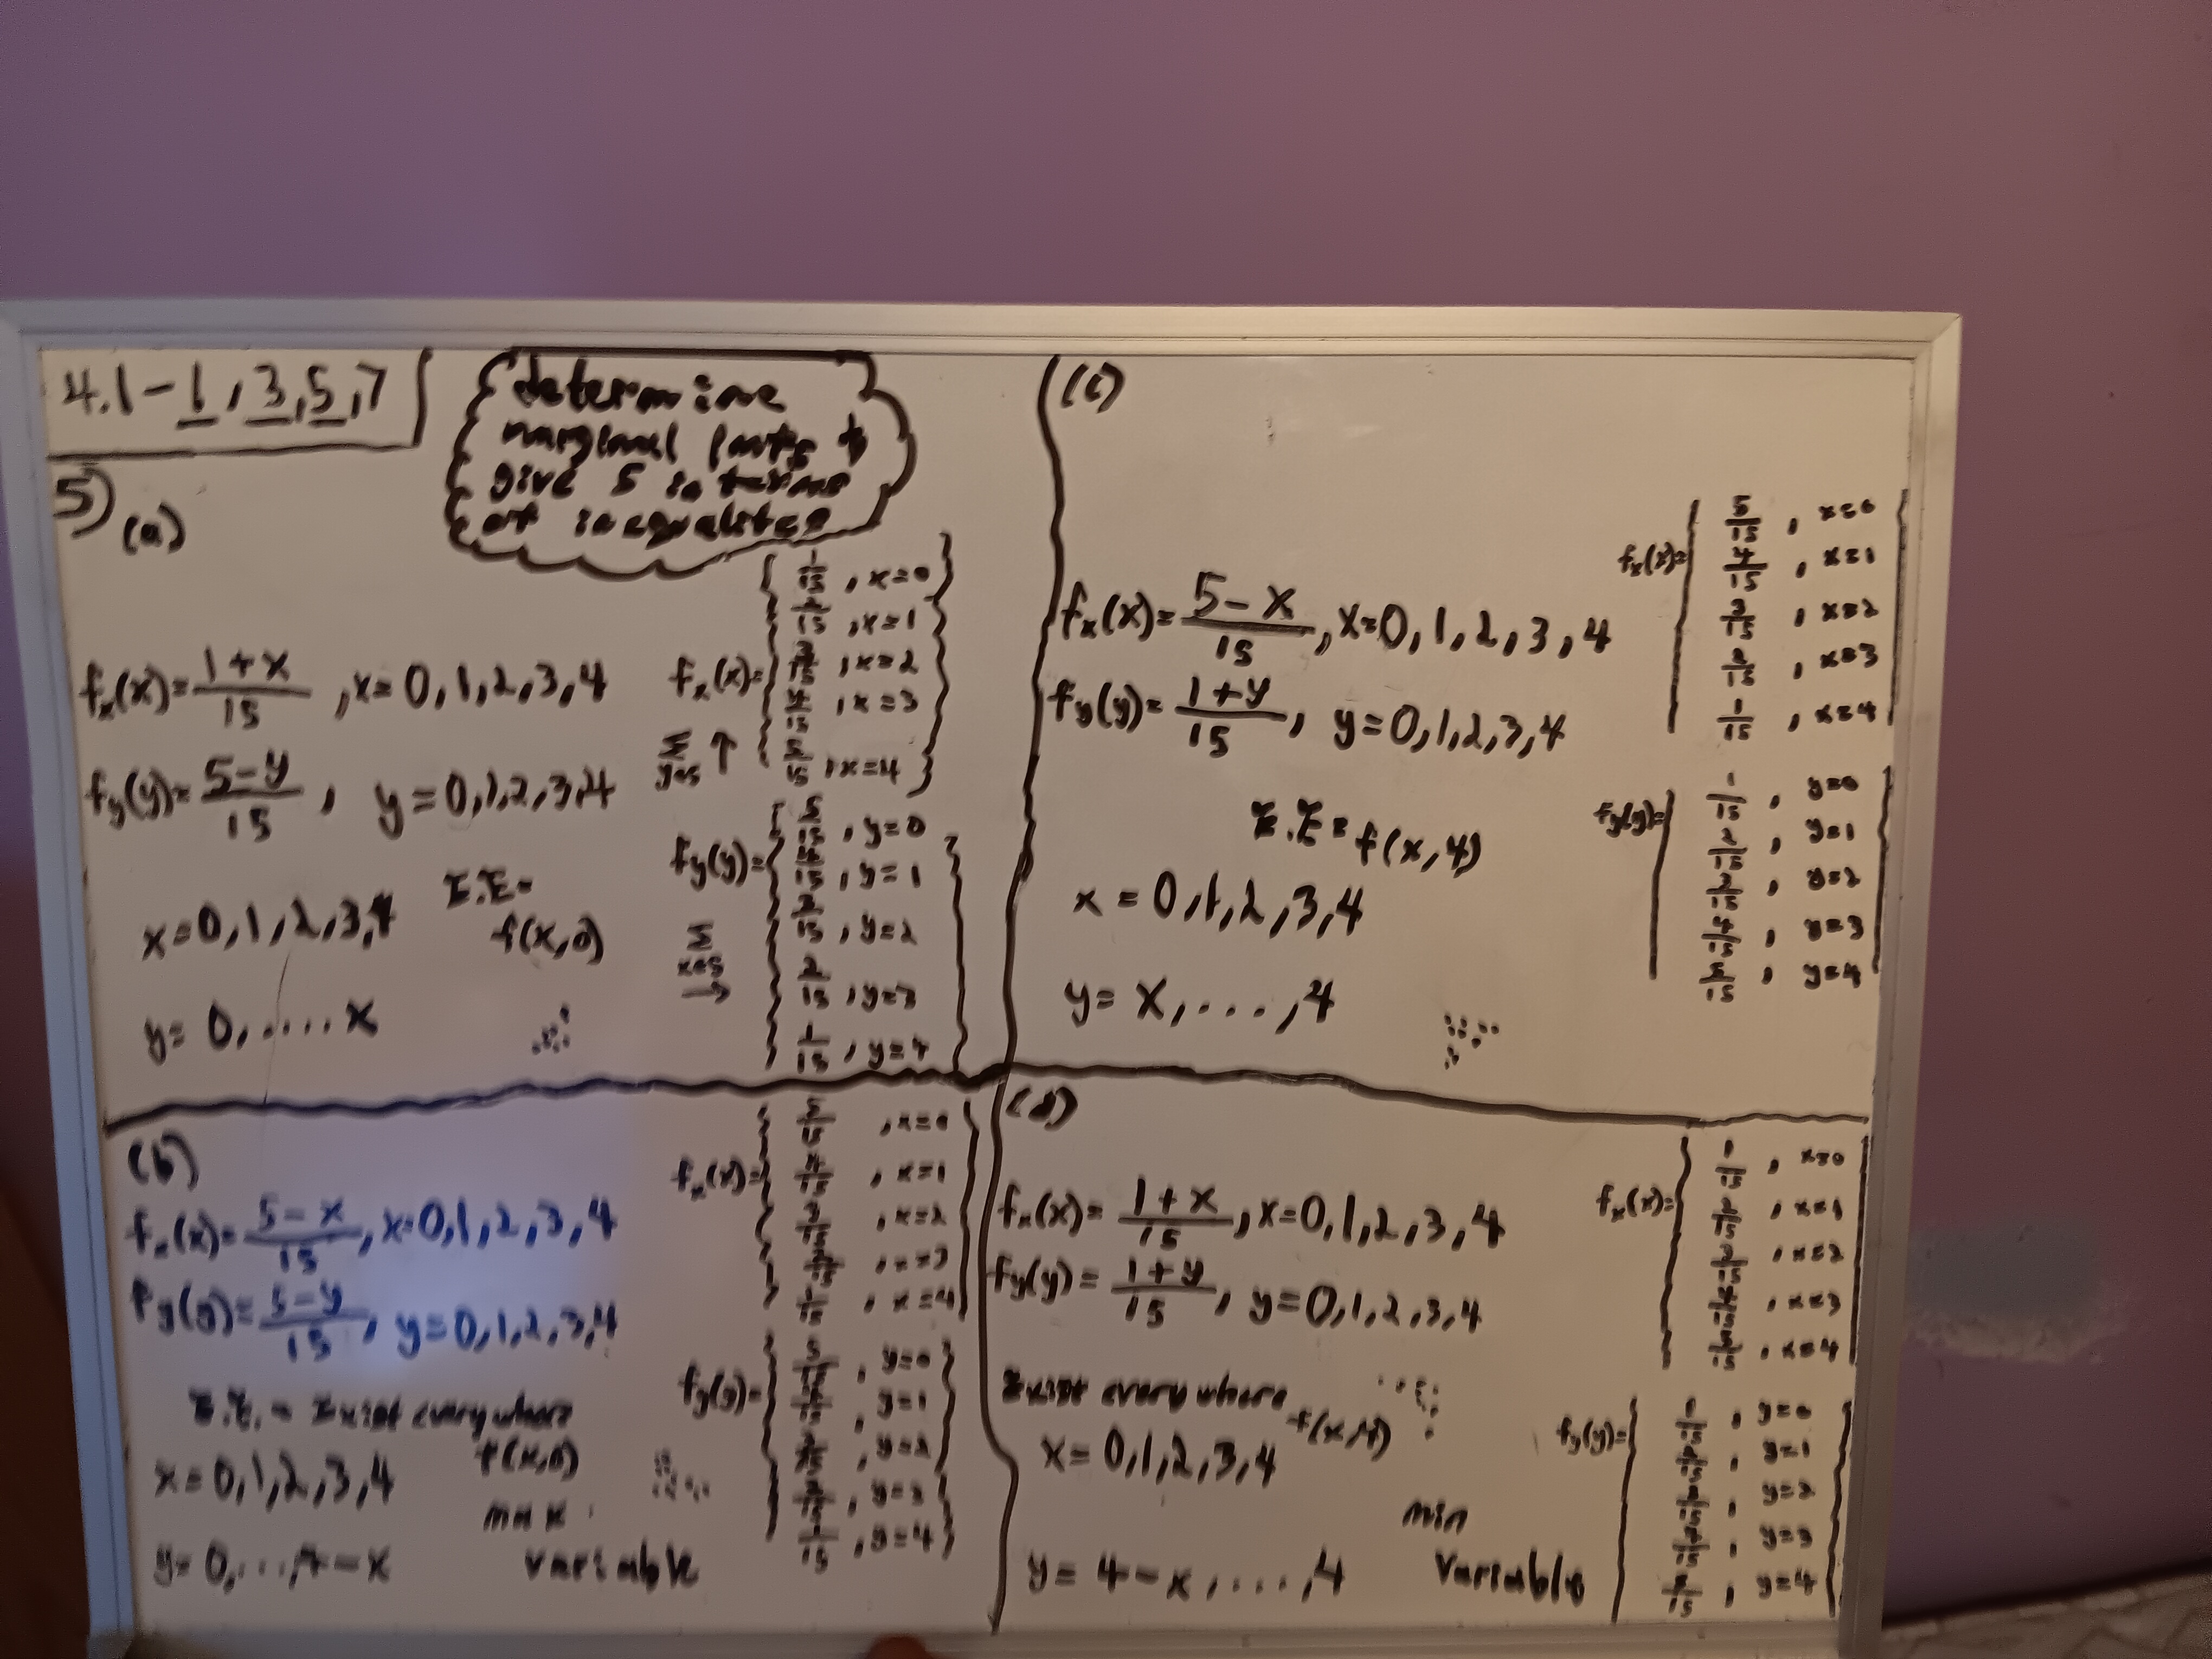 4.1-1,3,5,7
determine
marginal pmfs &
give S in terms
of inequalities
5)
(a)
fx(x)= 1+x/15 ,x=0,1,2,3,4
fy(y)= 5-y/15 , y=0,1,2,3,4
x=0,1,2,3,4
E.E=
f(x,0)
y=0,.....x
fx(x)=
1/15 ,x=0
2/15 ,x=1
3/15 ,x=2
4/15 ,x=3
5/15 ,x=4
Σ y∈S ↑
fy(y)=
5/15 ,y=0
4/15 ,y=1
3/15 ,y=2
2/15 ,y=3
1/15 ,y=4
Σ x∈S →
(b)
fx(x)= 5-x/15 ,x=0,1,2,3,4
fy(y)= 5-y/15 , y=0,1,2,3,4
E.E. = Exist everywhere
f(x,0)
x=0,1,2,3,4
max
y=0,...,4-x
variable
fx(x)=
5/15 ,x=0
4/15 ,x=1
3/15 ,x=2
2/15 ,x=3
1/15 ,x=4
fy(y)=
5/15 , y=0
4/15 , y=1
3/15 , y=2
2/15 , y=3
1/15 , y=4
(c)
fx(x)= 5-x/15 ,x=0,1,2,3,4
fy(y)= 1+y/15 , y=0,1,2,3,4
E.E= f(x,4)
x=0,1,2,3,4
y=x,...,4
fx(x)=
5/15 , x=0
4/15 , x=1
3/15 , x=2
2/15 , x=3
1/15 , x=4
fy(y)=
1/15 , y=0
2/15 , y=1
3/15 , y=2
4/15 , y=3
5/15 , y=4
(d)
fx(x)= 1+x/15 ,x=0,1,2,3,4
fy(y)= 1+y/15 , y=0,1,2,3,4
Exist everywhere
f(x,4)
x=0,1,2,3,4
min
y=4-x,...,4
variable
fx(x)=
1/15 , x=0
2/15 , x=1
3/15 , x=2
4/15 , x=3
5/15 , x=4
fy(y)=
1/15 , y=0
2/15 , y=1
3/15 , y=2
4/15 , y=3
5/15 , y=4